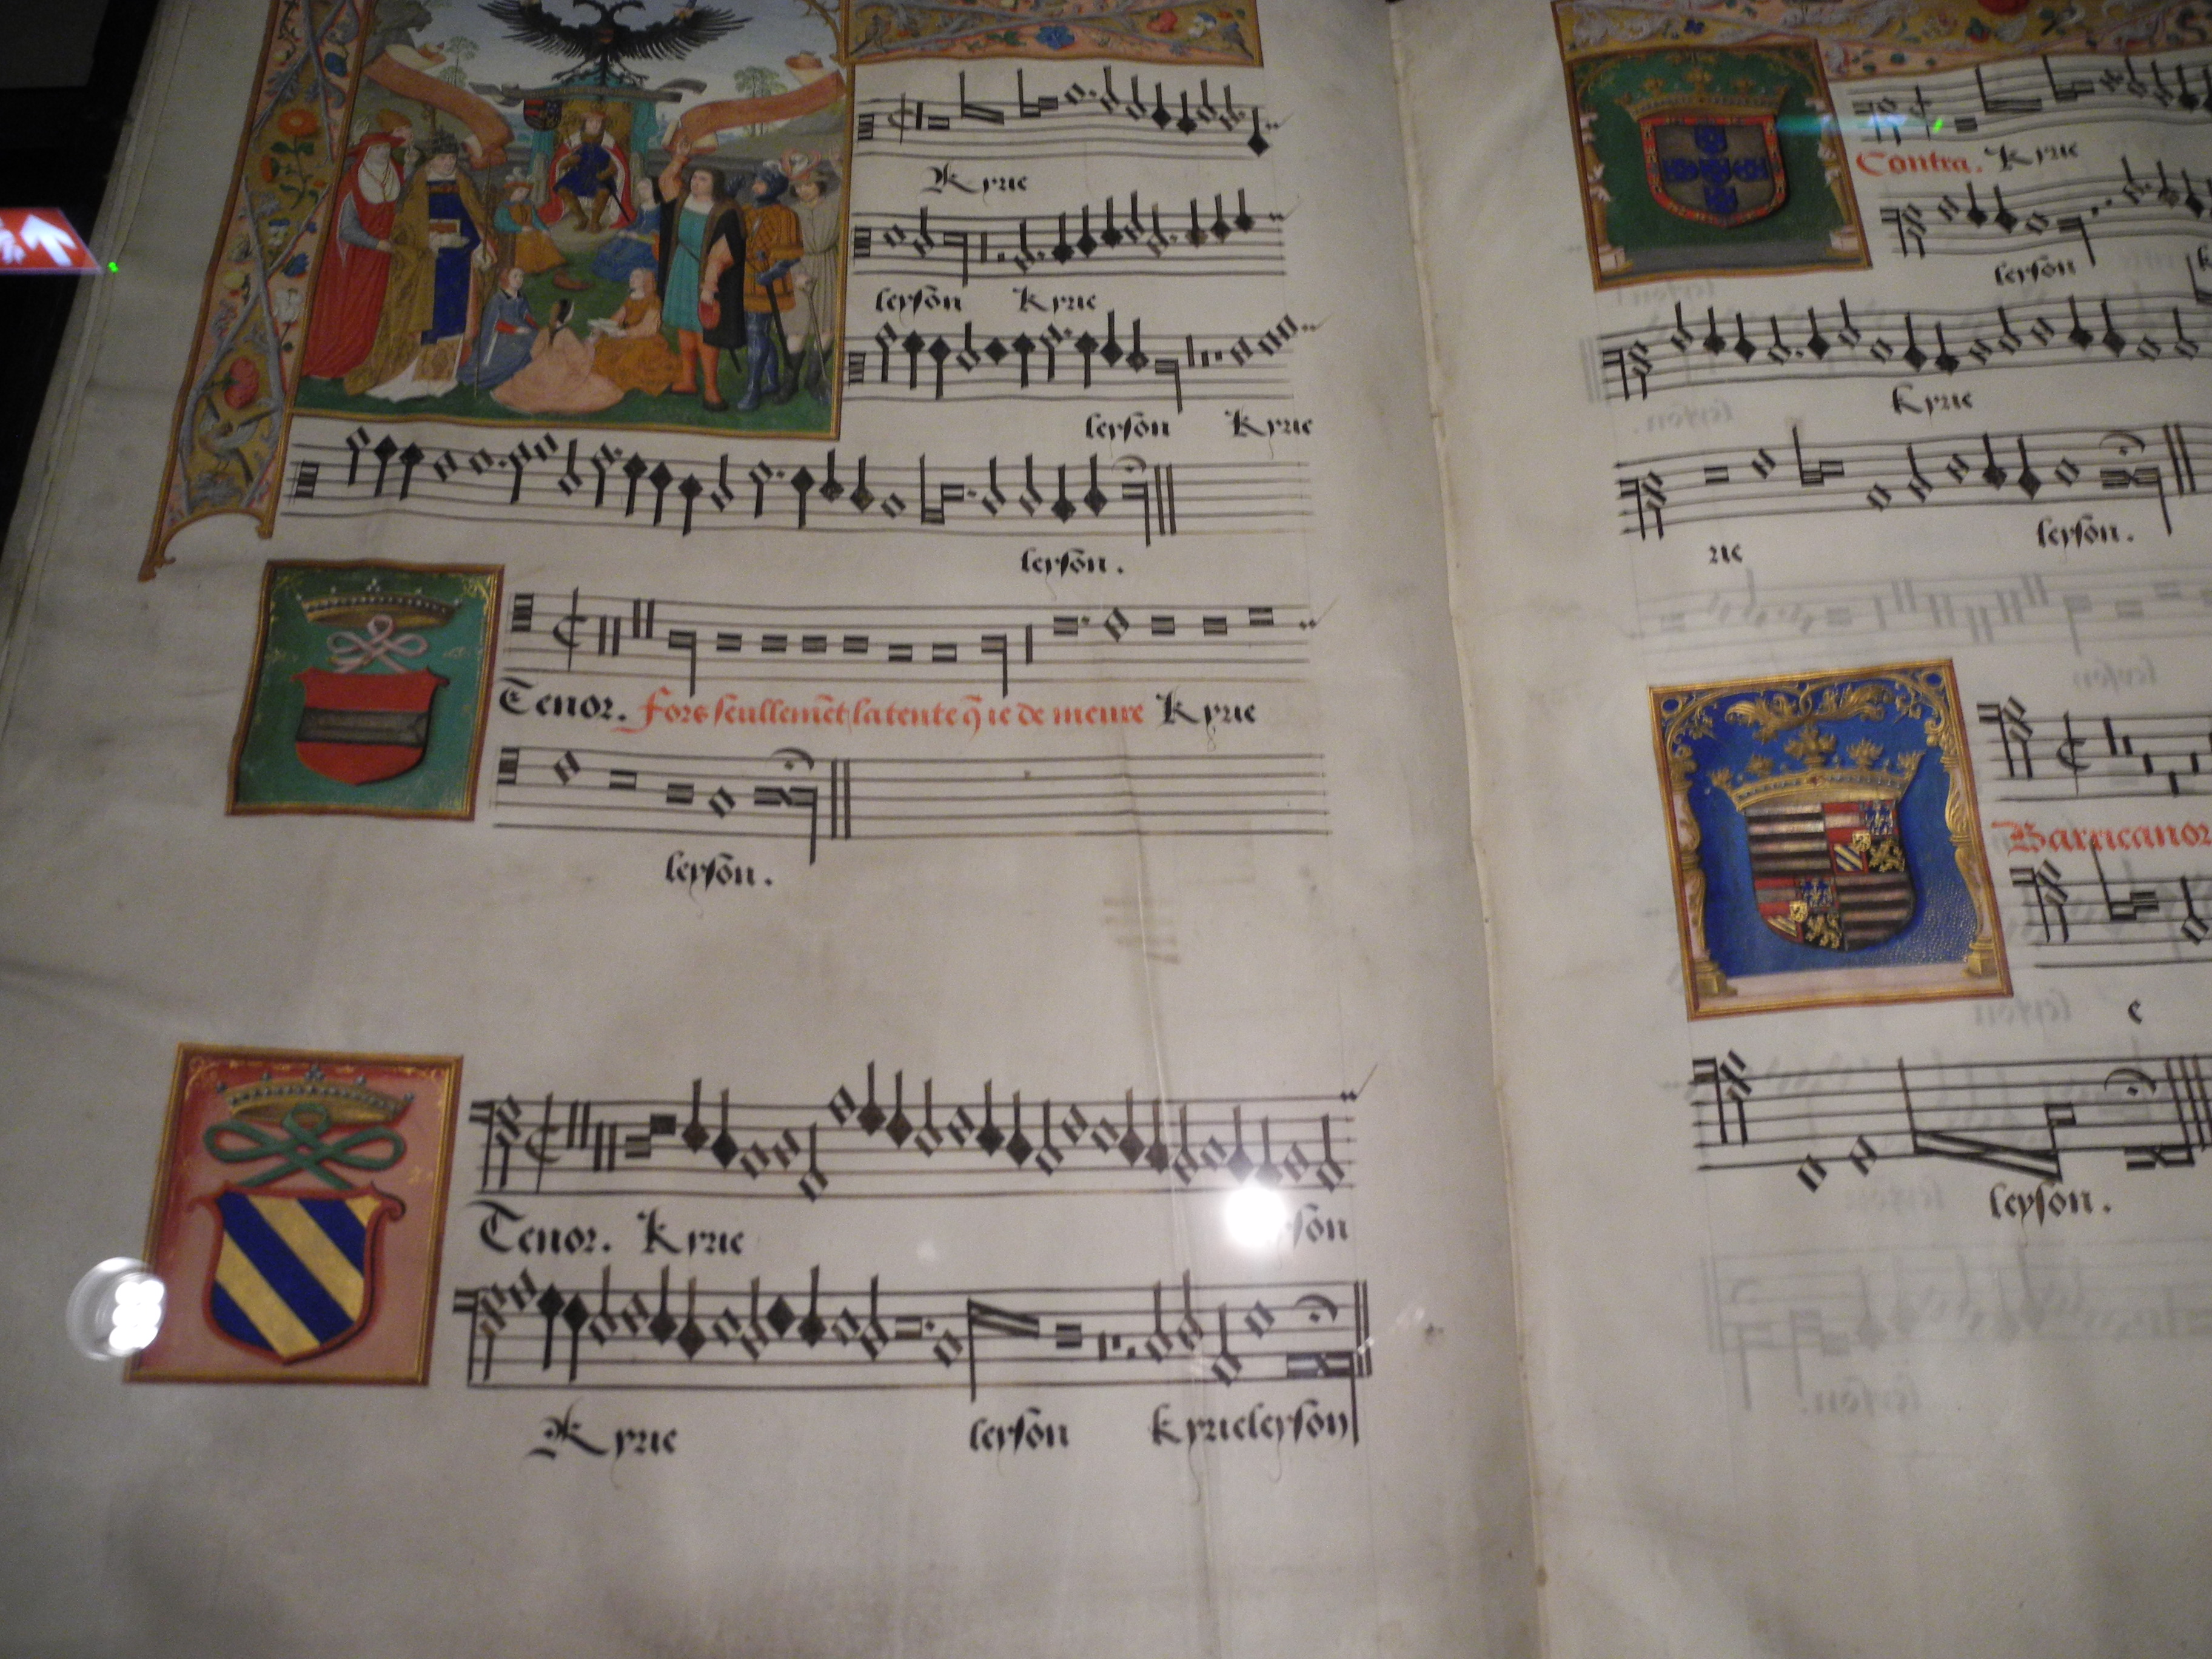 Kyrie
leysõn Kyrie
leysõn Kyrie
leysõn.
Tenor. Fors seullemẽt latente q̃ ie de meure Kyrie
leysõn.
Tenor. Kyrie sõn
Kyrie leysõn kyrieleysõn
Contra. Kyrie
leysõn
kyrie
rie leysõn.
Barricanor
e
leyson.